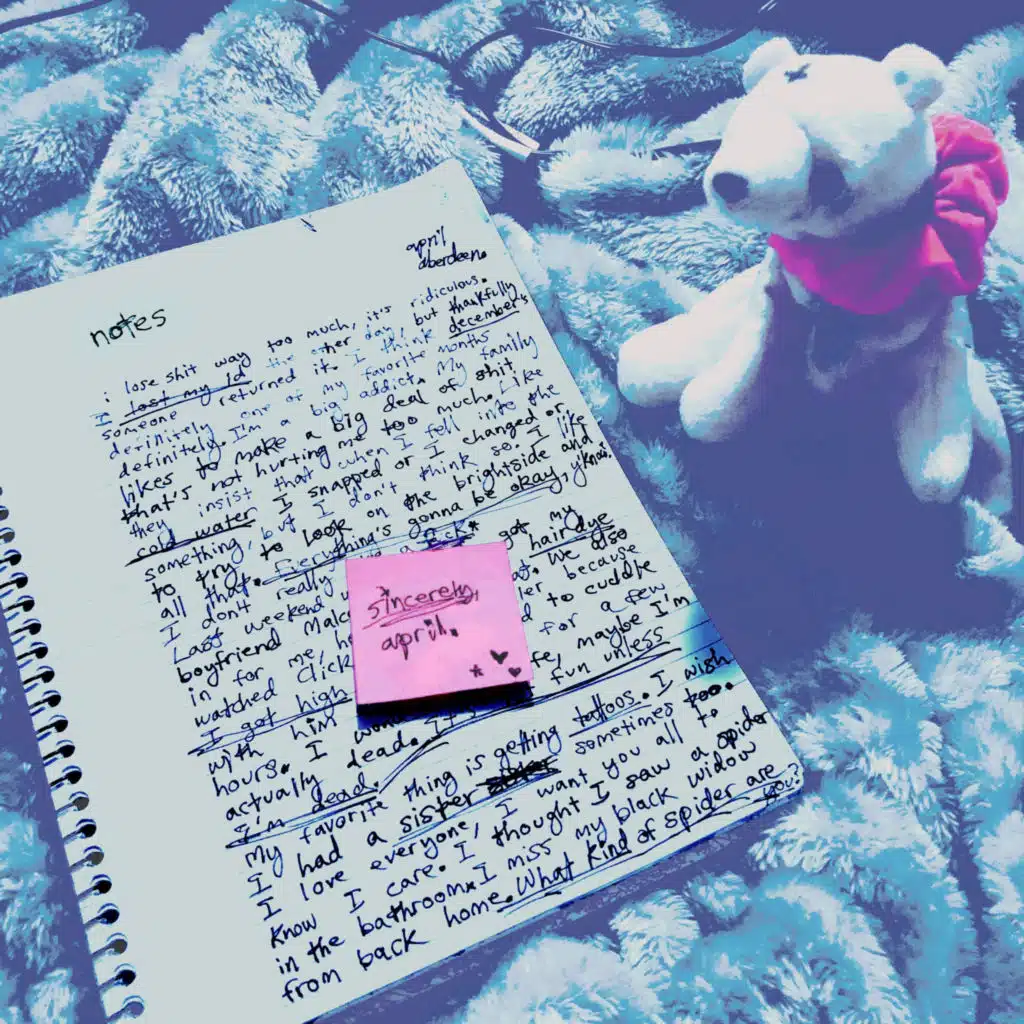 april
aberdeen.
notes
i lose shit way too much, it's ridiculous.
I lost my id the other day, but thankfully
someone returned it. I think december's
definitely one of my favorite months
definitely. I'm a big addict. My family
likes to make a big deal of shit
that's not hurting me too much. Like
they insist that when I fell into the
cold water I snapped or I changed or
something, but I don't think so. I like
to try to look on the brightside and
all that. Everything's gonna be okay, y'know.
I don't really a
Last weekend got my
boyfriend hair dye
in for me, We also
watched Click because
I got high to cuddle
with him for a few
hours. I maybe I'm
actually dead. It's fun unless
I'm dead.
My favorite thing is getting tattoos. I wish
I had a sister too.
I love everyone, I sometimes
know I care. I want you all to
in the bathroom. I thought I saw a spider
I miss my black widow
from back home. What kind of spider are you?
sincerely,
april.